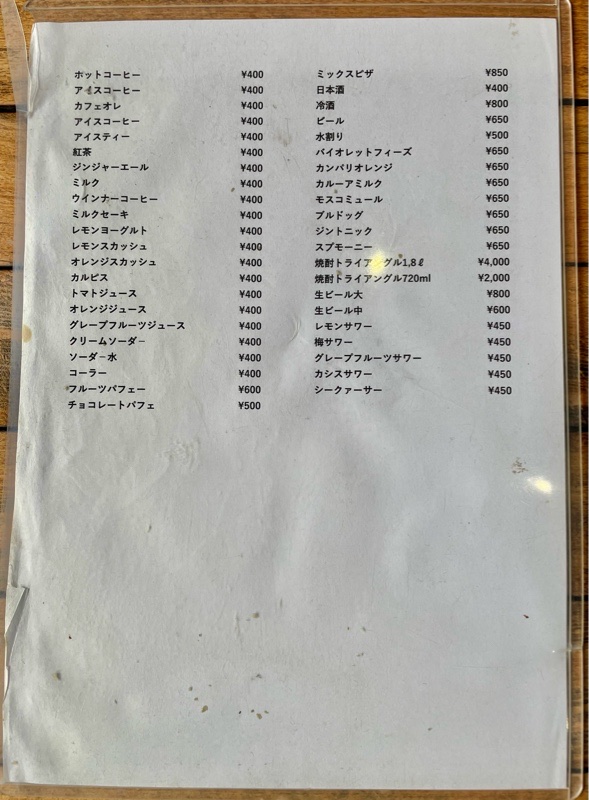 ホットコーヒー ¥400
アイスコーヒー ¥400
カフェオレ ¥400
アイスコーヒー ¥400
アイスティー ¥400
紅茶 ¥400
ジンジャーエール ¥400
ミルク ¥400
ウインナーコーヒー ¥400
ミルクセーキ ¥400
レモンヨーグルト ¥400
レモンスカッシュ ¥400
オレンジスカッシュ ¥400
カルピス ¥400
トマトジュース ¥400
オレンジジュース ¥400
グレープフルーツジュース ¥400
クリームソーダ− ¥400
ソーダ−水 ¥400
コーラー ¥400
フルーツパフェー ¥600
チョコレートパフェ ¥500
ミックスピザ ¥850
日本酒 ¥400
冷酒 ¥800
ビール ¥650
水割り ¥500
バイオレットフィーズ ¥650
カンパリオレンジ ¥650
カルーアミルク ¥650
モスコミュール ¥650
ブルドッグ ¥650
ジントニック ¥650
スプモーニー ¥650
焼酎トライアングル1,8ℓ ¥4,000
焼酎トライアングル720ml ¥2,000
生ビール大 ¥800
生ビール中 ¥600
レモンサワー ¥450
梅サワー ¥450
グレープフルーツサワー ¥450
カシスサワー ¥450
シークァーサー ¥450